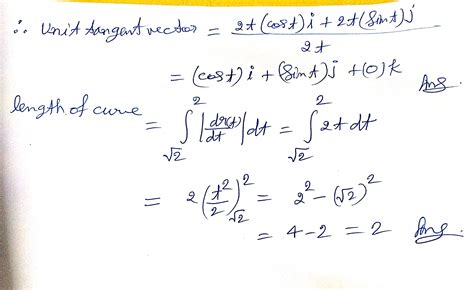 ∴ Unit tangent vector = (2t(cost)i + 2t(sint)j) / 2t
= (cost)i + (sint)j + (0)k Ans.
length of curve = ∫_{√2}^{2} |dr(t)/dt| dt = ∫_{√2}^{2} 2t dt
= 2(t²/2)_{√2}^{2} = 2² - (√2)²
= 4 - 2 = 2 Ans.